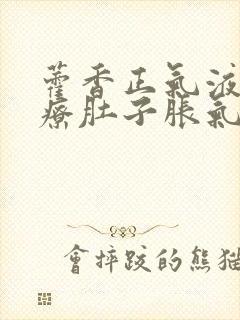 藿香正氣液
療肚子脹氣
會摔跤的熊猫